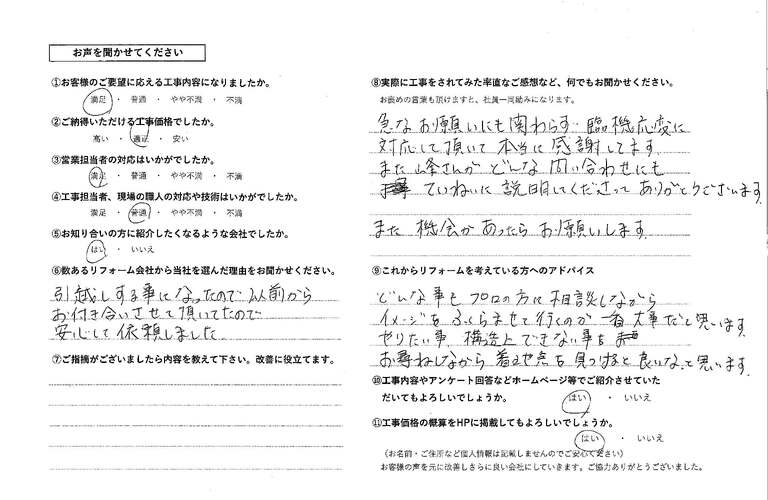 お声を聞かせてください
①お客様のご要望に応える工事内容になりましたか。
満足 ・ 普通 ・ やや不満 ・ 不満
②ご納得いただける工事価格でしたか。
高い ・ 適正 ・ 安い
③営業担当者の対応はいかがでしたか。
満足 ・ 普通 ・ やや不満 ・ 不満
④工事担当者、現場の職人の対応や技術はいかがでしたか。
満足 ・ 普通 ・ やや不満 ・ 不満
⑤お知り合いの方に紹介したくなるような会社でしたか。
はい ・ いいえ
⑥数あるリフォーム会社から当社を選んだ理由をお聞かせください。
引越しする事になったので以前から
お付き合いさせて頂いてたので
安心して依頼しました
⑦ご指摘がございましたら内容を教えて下さい。改善に役立てます。
⑧実際に工事をされてみた率直なご感想など、何でもお聞かせください。
お褒めの言葉も頂けますと、社員一同励みになります。
急なお願いにも関わらず 臨機応変に
対応して頂いて 本当に感謝してます。
また峰さんが どんな問い合わせにも
ていねいに 説明してくださって ありがとうございます。
また 機会があったら お願いします。
⑨これからリフォームを考えている方へのアドバイス
どんな事も プロの方に 相談しながら
イメージを ふくらませて行くのが 一番大事だと思います。
やりたい事、構造上できない事を
お尋ねしながら 着地点を見つけると良いなって思います。
⑩工事内容やアンケート回答などホームページ等でご紹介させていた
だいてもよろしいでしょうか。 はい ・ いいえ
⑪工事価格の概算をHPに掲載してもよろしいでしょうか。
はい ・ いいえ
（お名前・ご住所など個人情報は記載しませんのでご安心ください）
お客様の声を元に改善しさらに良い会社にしていきます。ご協力ありがとうございました。